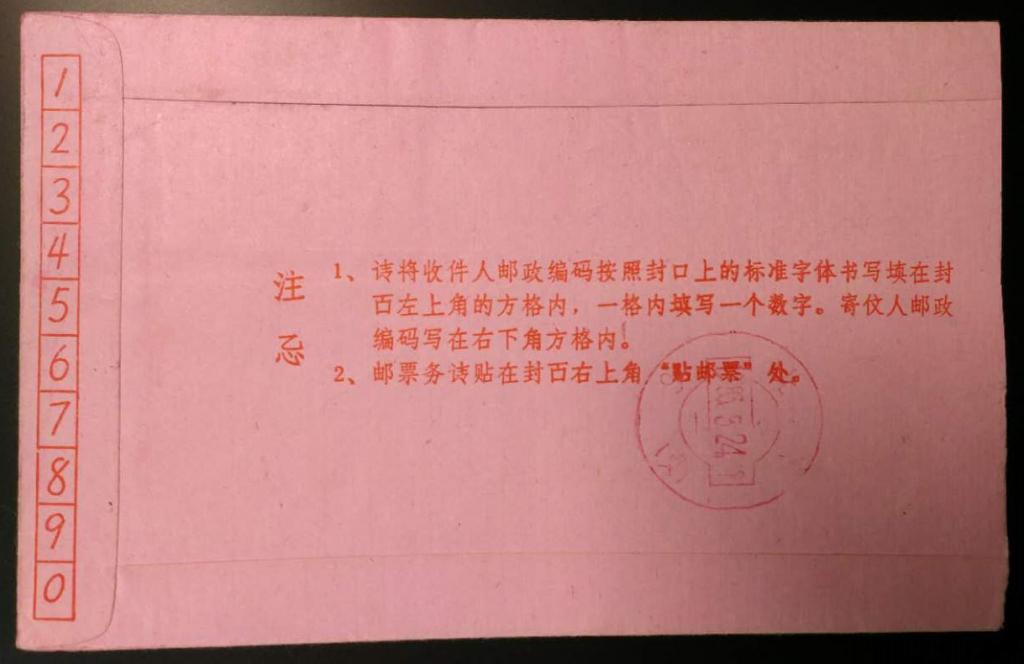 1
2
3
4
5
6
7
8
9
0
注意
1、请将收件人邮政编码按照封口上的标准字体书写填在封
面左上角的方格内，一格内填写一个数字。寄伩人邮政
编码写在右下角方格内。
2、邮票务请贴在封面右上角“贴邮票”处。
24